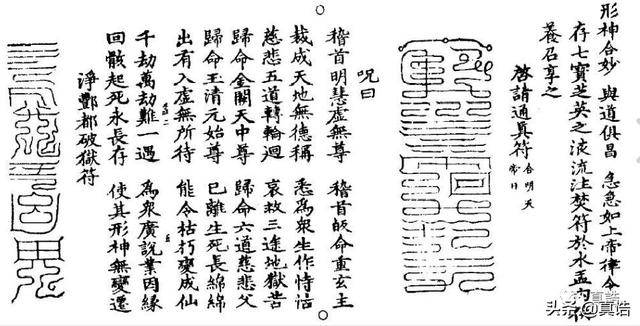 形神合妙 與道俱昌 急急如上帝律令
存七寶芝英之液流注焚符於水盂内
召享之
啓請通真符 合明天帝日
呪曰
稽首明慧虚無尊 稽首皈命重玄主
裁成天地無德稱 悉爲衆生作恃怙
慈悲五道轉輪迴 哀救三途地獄苦
歸命金闕天中尊 歸命六道慈悲父
歸命玉清元始尊 已離生死長綿綿
出有入虚無所待 能令枯朽變成仙
千劫萬劫難一遇 爲衆廣説業因緣
回骸起死永長存 使其形神無變遷
淨酆都破獄符
真诰
头条@真诰